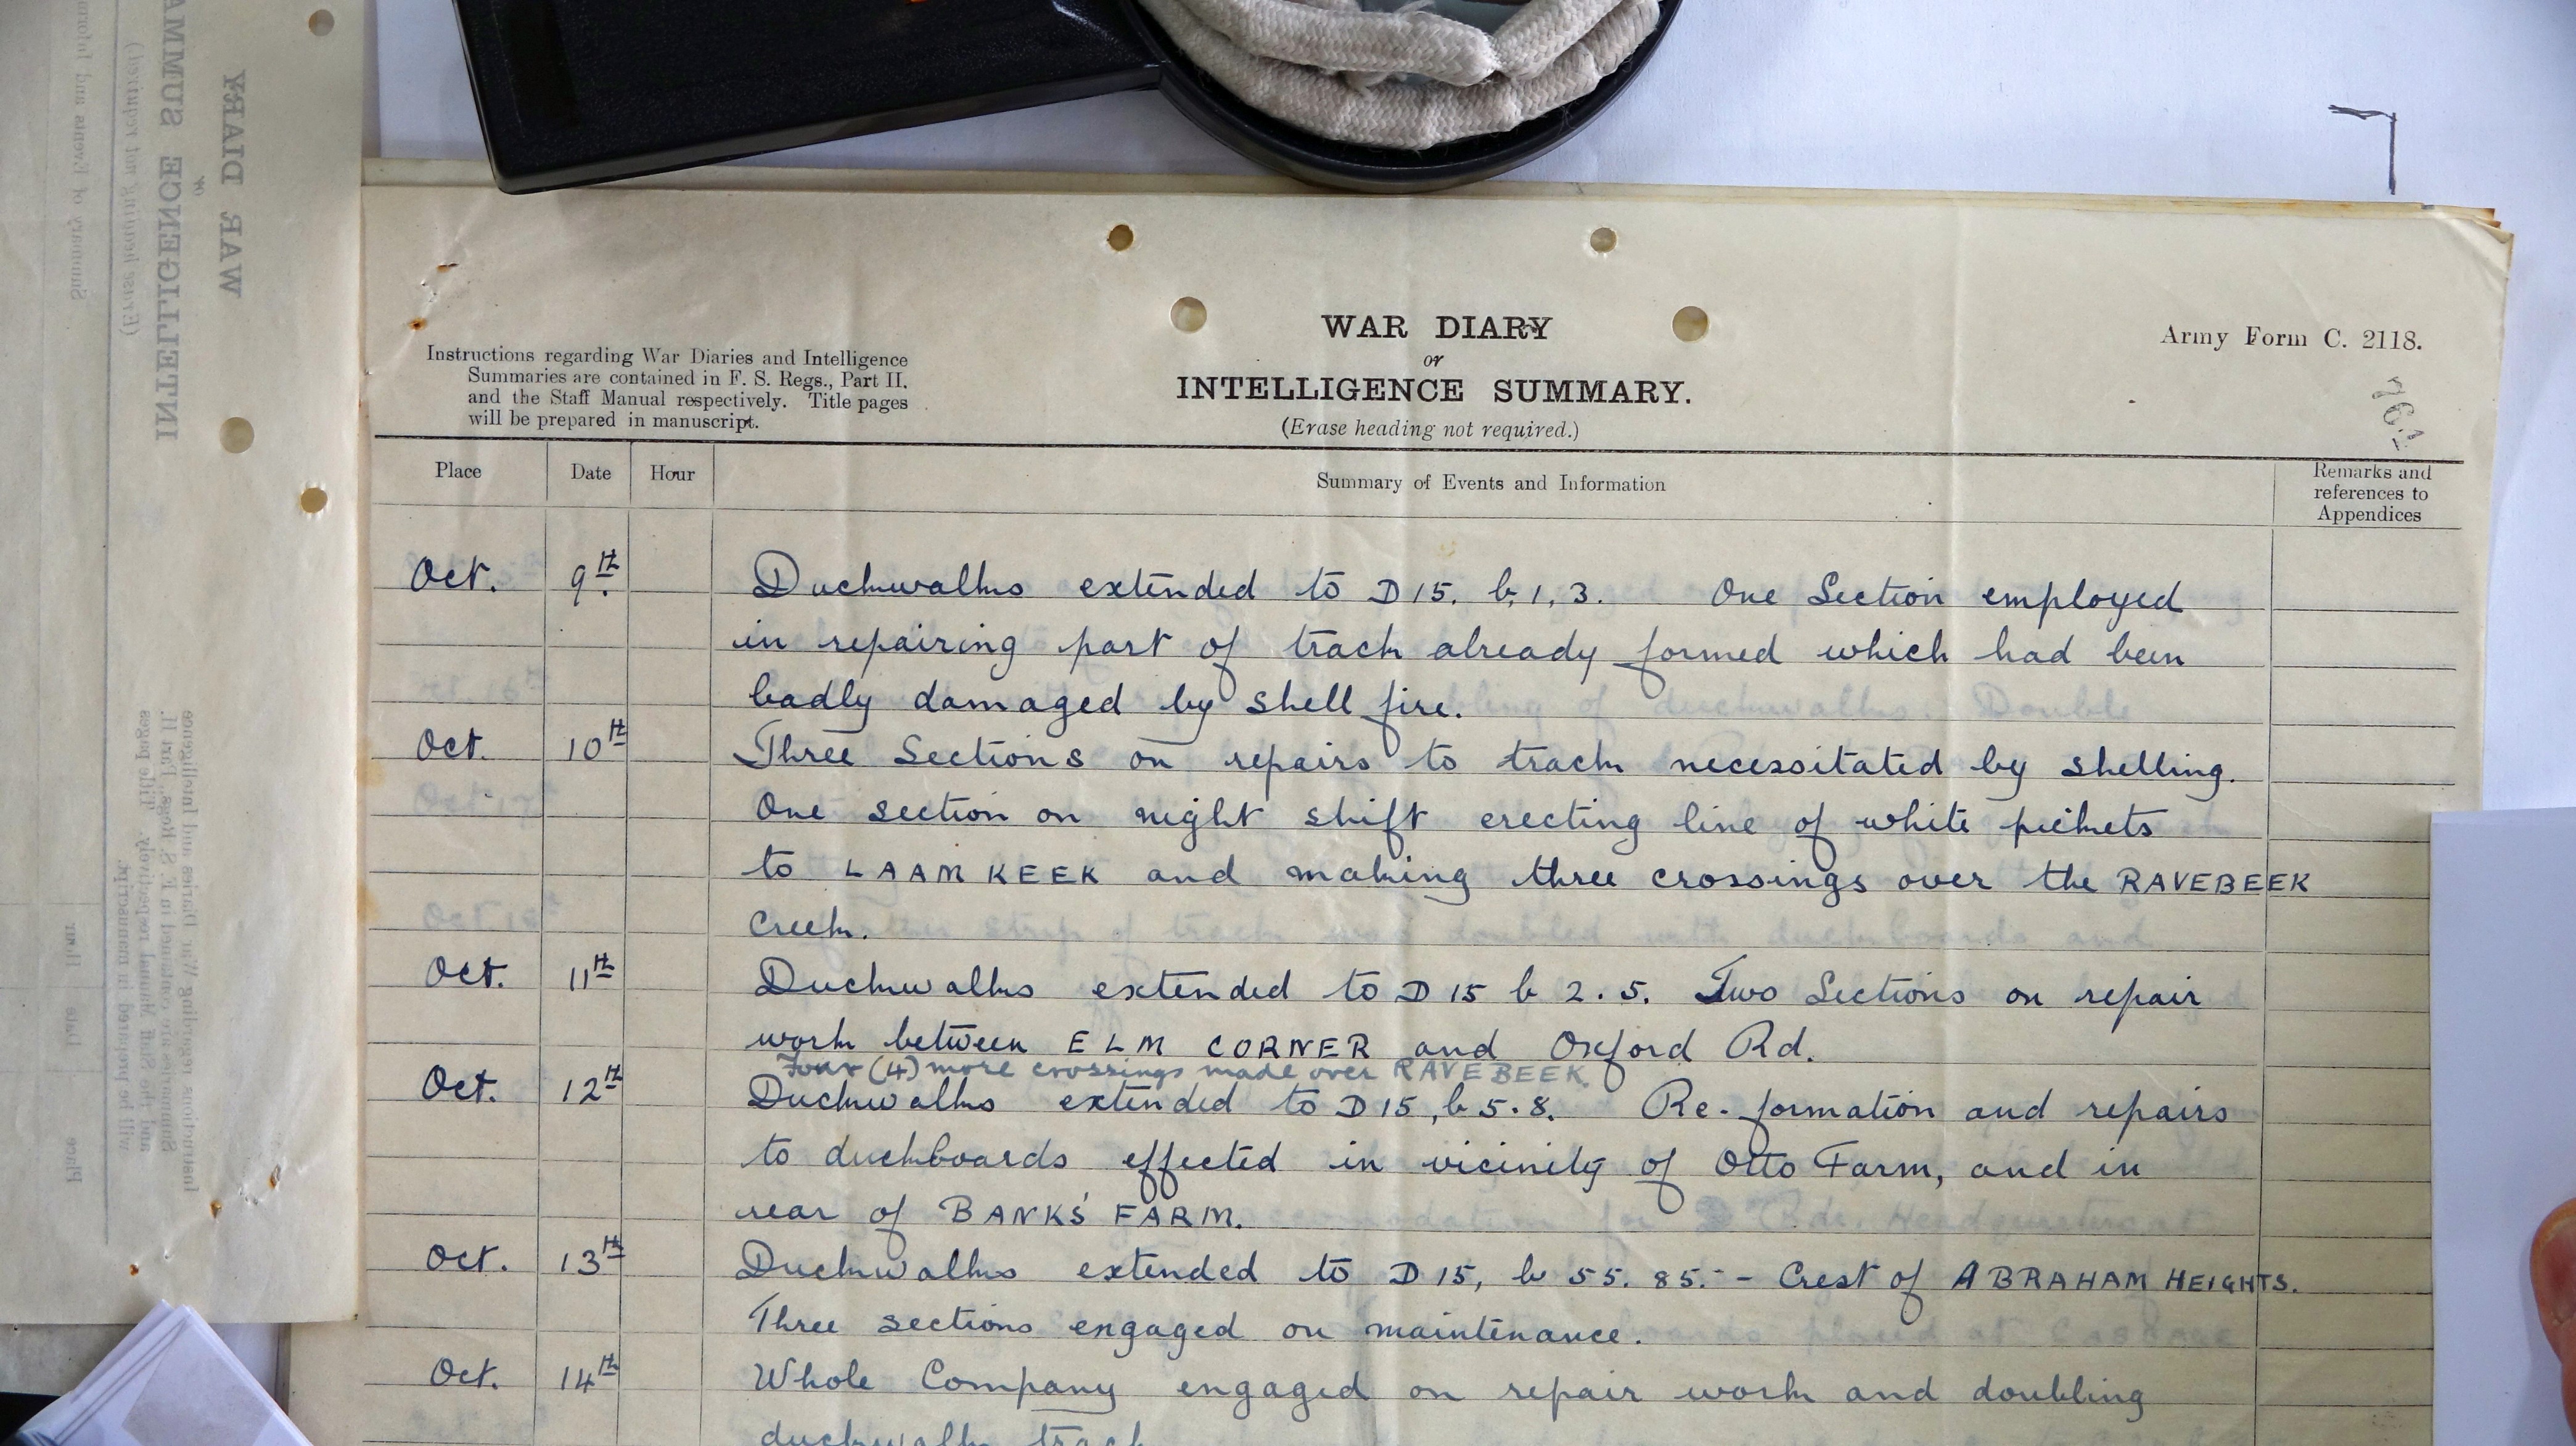 WAR DIARY
or
INTELLIGENCE SUMMARY.
(Erase heading not required.)
Army Form C. 2118.
Instructions regarding War Diaries and Intelligence
Summaries are contained in F. S. Regs., Part II.
and the Staff Manual respectively. Title pages
will be prepared in manuscript.
Place Date Hour Summary of Events and Information Remarks and
references to
Appendices
Oct. 9th Duckwalks extended to D 15. b, 1, 3. One Section employed
in repairing part of track already formed which had been
badly damaged by shell fire.
Oct. 10th Three Sections on repairs to track necessitated by shelling.
One section on night shift erecting line of white pickets
to LAAMKEEK and making three crossings over the RAVEBEEK
Creek.
Oct. 11th Duckwalks extended to D 15 b 2. 5. Two Sections on repair
work between ELM CORNER and Oxford Rd.
Four (4) more crossings made over RAVEBEEK
Oct. 12th Duckwalks extended to D 15, b 5. 8. Re-formation and repairs
to duckboards effected in vicinity of Otto Farm, and in
rear of BANKS' FARM.
Oct. 13th Duckwalks extended to D 15, b 55. 85. - Crest of ABRAHAM HEIGHTS.
Three sections engaged on maintenance.
Oct. 14th Whole Company engaged on repair work and doubling
duckwalk track
WAR DIARY
or
INTELLIGENCE SUMMA
(Erase heading not required)
Summary of Events and Inform
Instructions regarding War Diaries and Intelligence
Summaries are contained in F. S. Regs., Part II.
and the Staff Manual respectively. Title pages
will be prepared in manuscript.
Place Date Hour